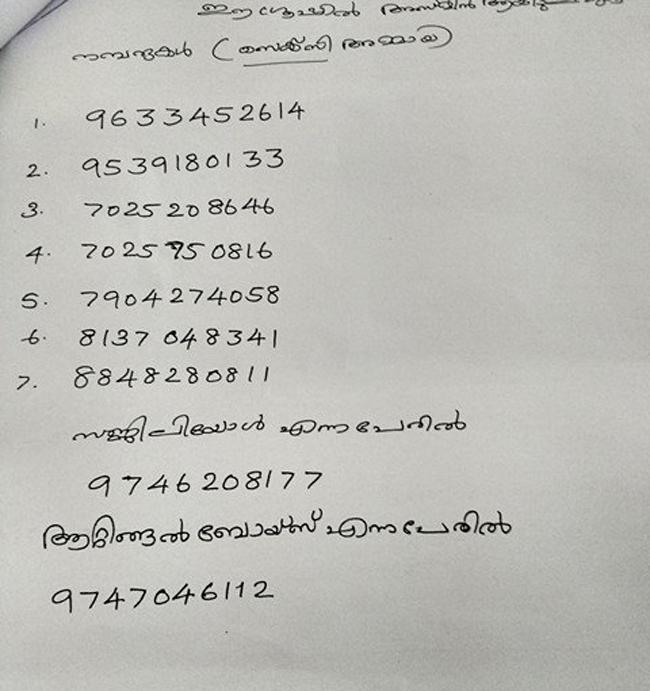 ഈ ഗ്രൂപ്പിൽ അഡ്മിൻ
നമ്പറുകൾ (സെക്സി അമ്മായി)
1. 9633452614
2. 9539180133
3. 7025208646
4. 7025950816
5. 7904274058
6. 8137048341
7. 8848280811
എന്ന പേരിൽ
9746208177
ആറ്റിങ്ങൽ ബോയ്സ് എന്ന പേരിൽ
9747046112